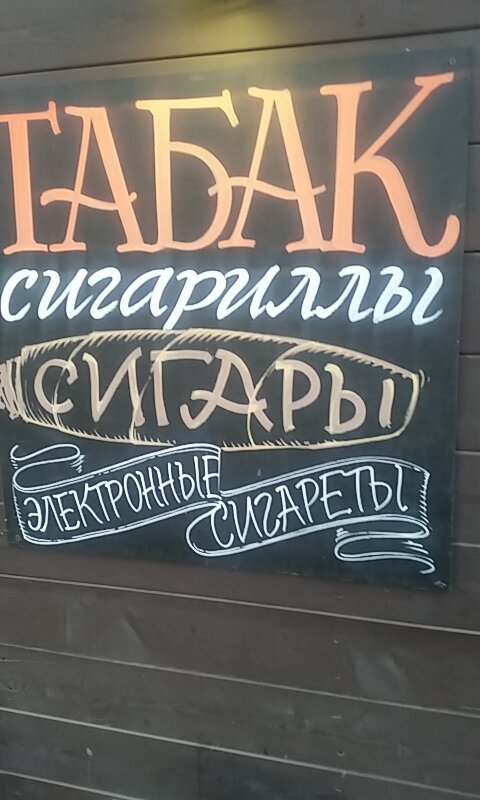 ТАБАК
сигариллы
СИГАРЫ
ЭЛЕКТРОННЫЕ
СИГАРЕТЫ